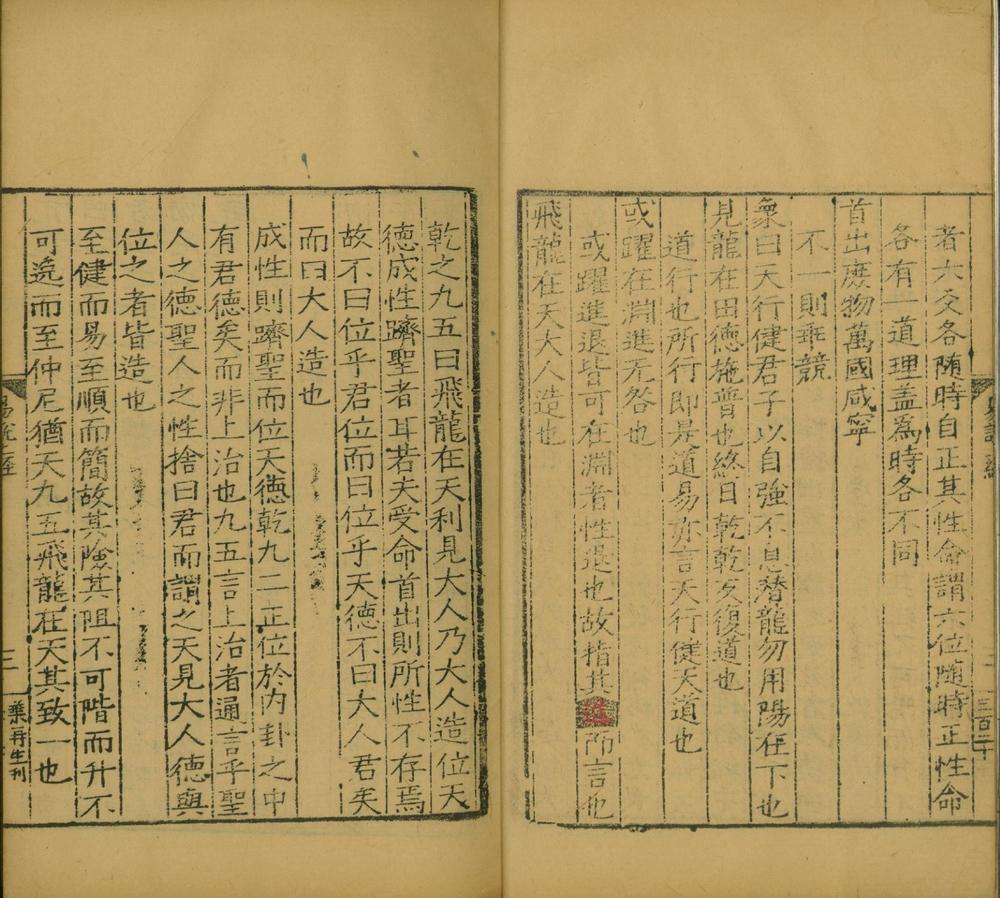 者六爻各随時自正其性命謂六位随時正性命
各有一道理盖為時各不同
首出庶物萬國咸寧
不一則乖競
象曰天行健君子以自強不息潜龍勿用陽在下也
見龍在田德施普也終日乾乾反復道也
道行也所行即是道易亦言天行健天道也
或躍在淵進无咎也
或躍進退皆可在淵者性退也故指其而言也
飛龍在天大人造也
三百二十
乾之九五曰飛龍在天利見大人乃大人造位天
徳成性躋聖者耳若夫受命首出則所性不存焉
故不曰位乎君位而曰位乎天徳不曰大人君矣
而曰大人造也
成性則躋聖而位天徳乾九二正位於内卦之中
有君徳矣而非上治也九五言上治者通言乎聖
人之徳聖人之性捨曰君而謂之天見大人徳與
位之者皆造也
至健而易至順而簡故其險其阻不可階而升不
可逸而至仲尼猶天九五飛龍在天其致一也
易說上經
三
葉再生刊